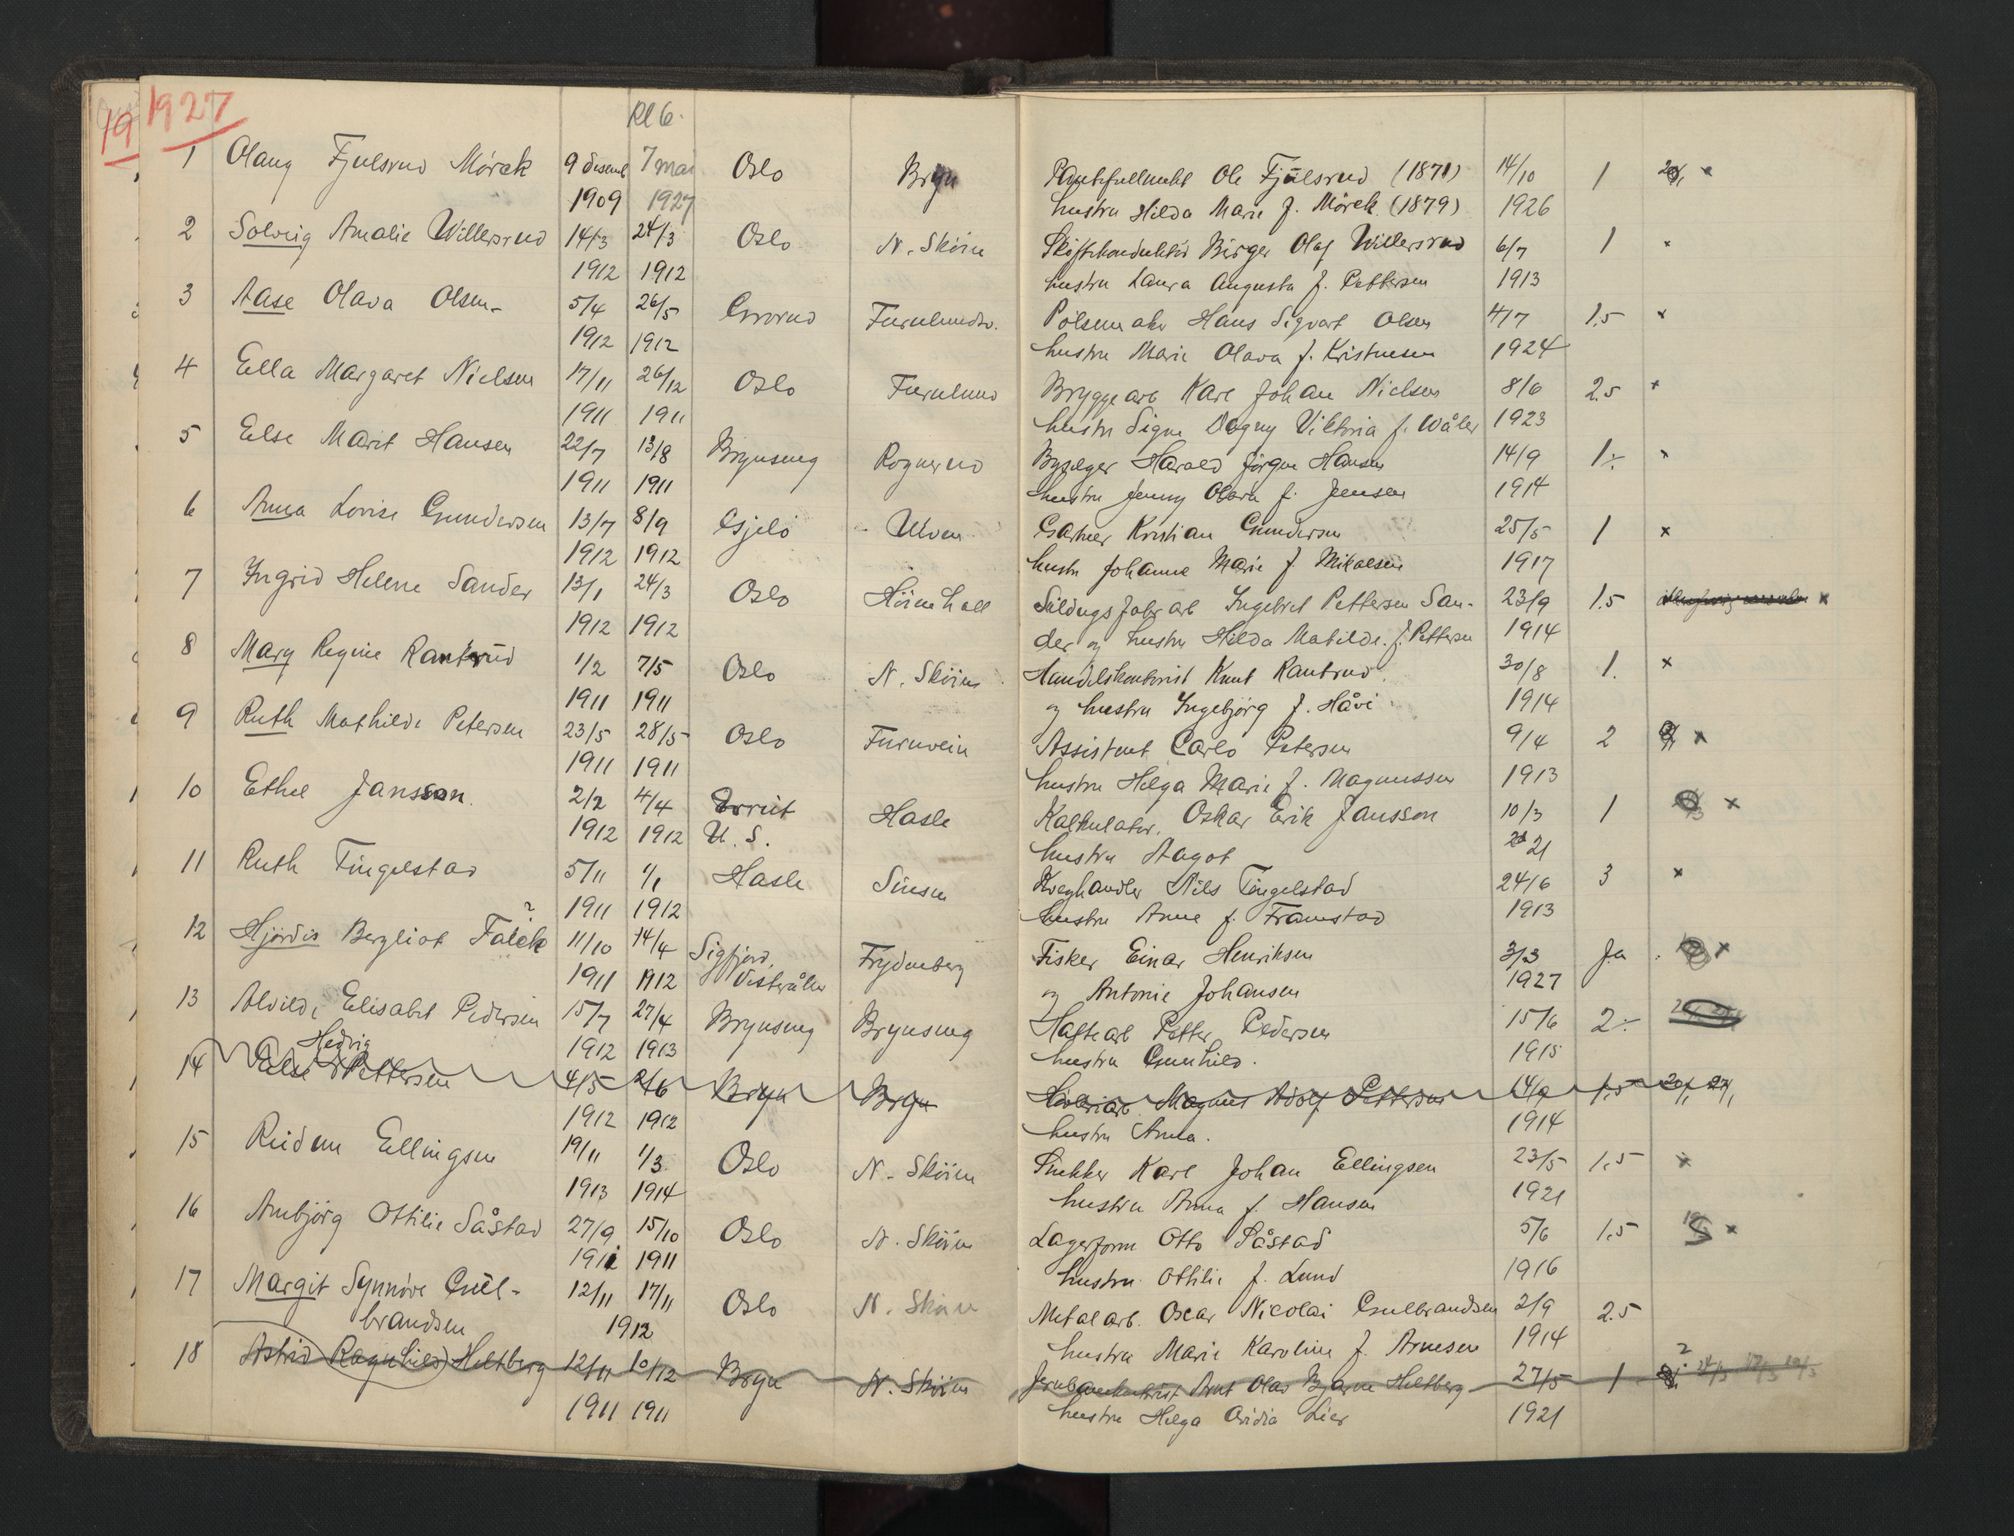 1927
19
Kl 6.
1 Olaug Fjulsrud Mørck 9 desemb 7 mai Oslo Bryn Ole Fjulsrud (1871) 14/10 1 x
1909 1927 hustru Hilda Marie f. Mörck (1879) 1926
2 Solveig Amalie Willersrud 14/3 24/3 Oslo N. Skøien Birger Olaf Willersrud 6/7 1 x
1912 1912 hustru Laura Augusta f. Pettersen 1913
3 Aase Olava Olsen 5/4 26/5 Grorud Furulundsv. Pölsemaker Hans Sigvart Olsen 4/7 1.5 x
1912 1912 hustru Marie Olava f. Kristensen 1924
4 Ella Margaret Nielsen 17/11 26/12 Oslo Furulund Bryggearb Karl Johan Nielsen 8/6 2.5 x
1911 1911 hustru Signe Dagny Viktoria f. Wåler 1923
5 Else Marit Hansen 22/7 13/8 Brynseng Rognerud Harald Jörgen Hansen 14/9 1 ÷ x
1911 1911 hustru Jenny Olava f. Jensen 1914
6 Anna Lovise Gundersen 13/7 8/9 Gjelö Ulven Gartner Kristian Gundersen 25/5 1 x
1912 1912 hustru Johanne Marie f Mikalsen 1917
7 Ingrid Helene Sander 13/1 24/3 Oslo Ingebret Pettersen San- 23/9 1.5 x
1912 1912 der og hustru Hilda Matilde f. Pettersen 1914
8 Mary Regine Rantrud 1/2 7/5 Oslo N. Skøien Handelskontorist Knut Rantrud. 30/8 1. x
1911 1911 og hustru Ingebjörg f. Håvi 1914
9 Ruth Mathilde Petersen 23/5 28/5 Oslo Furuvein Assistent Carlo Petersen 9/4 2 x
1911 1911 hustru Helga Marie f. Magnussen 1913
10 Ethel Jansson. 2/2 4/4 Hasle Kalkulatör. Oskar Erik Jansson 10/3 1 x
1912 1912 U. S. hustru Aagot 21
11 Ruth Tingelstad 5/11 1/1 Hasle Sinsen Kveghandler Nils Tingelstad 24/6 3 x
1911 1912 hustru Anne f. Framstad 1913
12 Hjördis Bergliot Falck ? 11/10 14/4 Sigfjord, Frydenberg Fisker Einar Henriksen 3/3 Ja x
1911 1912 Vesterålen og Antonie Johansen 1927
13 Alvilde Elisabet Pedersen 15/7 27/4 Brynseng Brynseng Petter Pedersen 15/6 2 ÷
1912 1913 hustru Gunhild. 1915
Hedvig
14 Else Pettersen 4/5 2/6 Bryn Bryn Magnus Adolf Pettersen 14/9 1.5
1912 1912 hustru Anna. 1914
15 Reidun Ellingsen 19/11 1/3 Oslo N. Skøien Karl Johan Ellingsen 23/5 1.5 x
1913 1914 hustru Anna f. Hansen 1921
16 Ambjörg Ottilie Såstad 27/9 15/10 Oslo N. Skøien Lagerform Otto Såstad 5/6 1.5 x
1911 1911 hustru Ottilie f. Lund 1916
17 Margit Synnöve Gul- 12/11 17/11 Oslo N. Skøien Metalarb. Oscar Nicolai Gulbrandsen 2/9 2.5
brandsen 1912 hustru Marie Karoline f. Arnesen 1914
18 Astrid Ragnhild Heltberg 12/11 10/12 Bryn N. Skøien Arnt Olav Bjarne Heltberg 27/5 1
1911 1911 hustru Helga Lier 1921